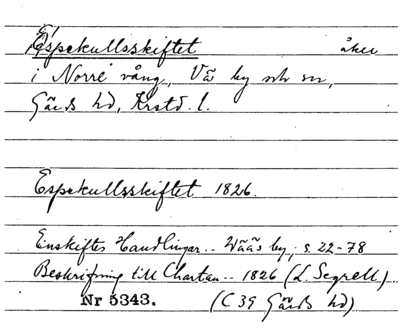 Espekullsskiftet åker
i Norre vång, Vä by och sn,
Gärds hd, Krstd. l.
Espekullsskiftet 1826.
Enskiftes Handlingar.. Wääs by, s. 22-78
Beskrifning till Chartan.. 1826 (L. Segrell)
Nr 5343. (C 39 Gärds hd)